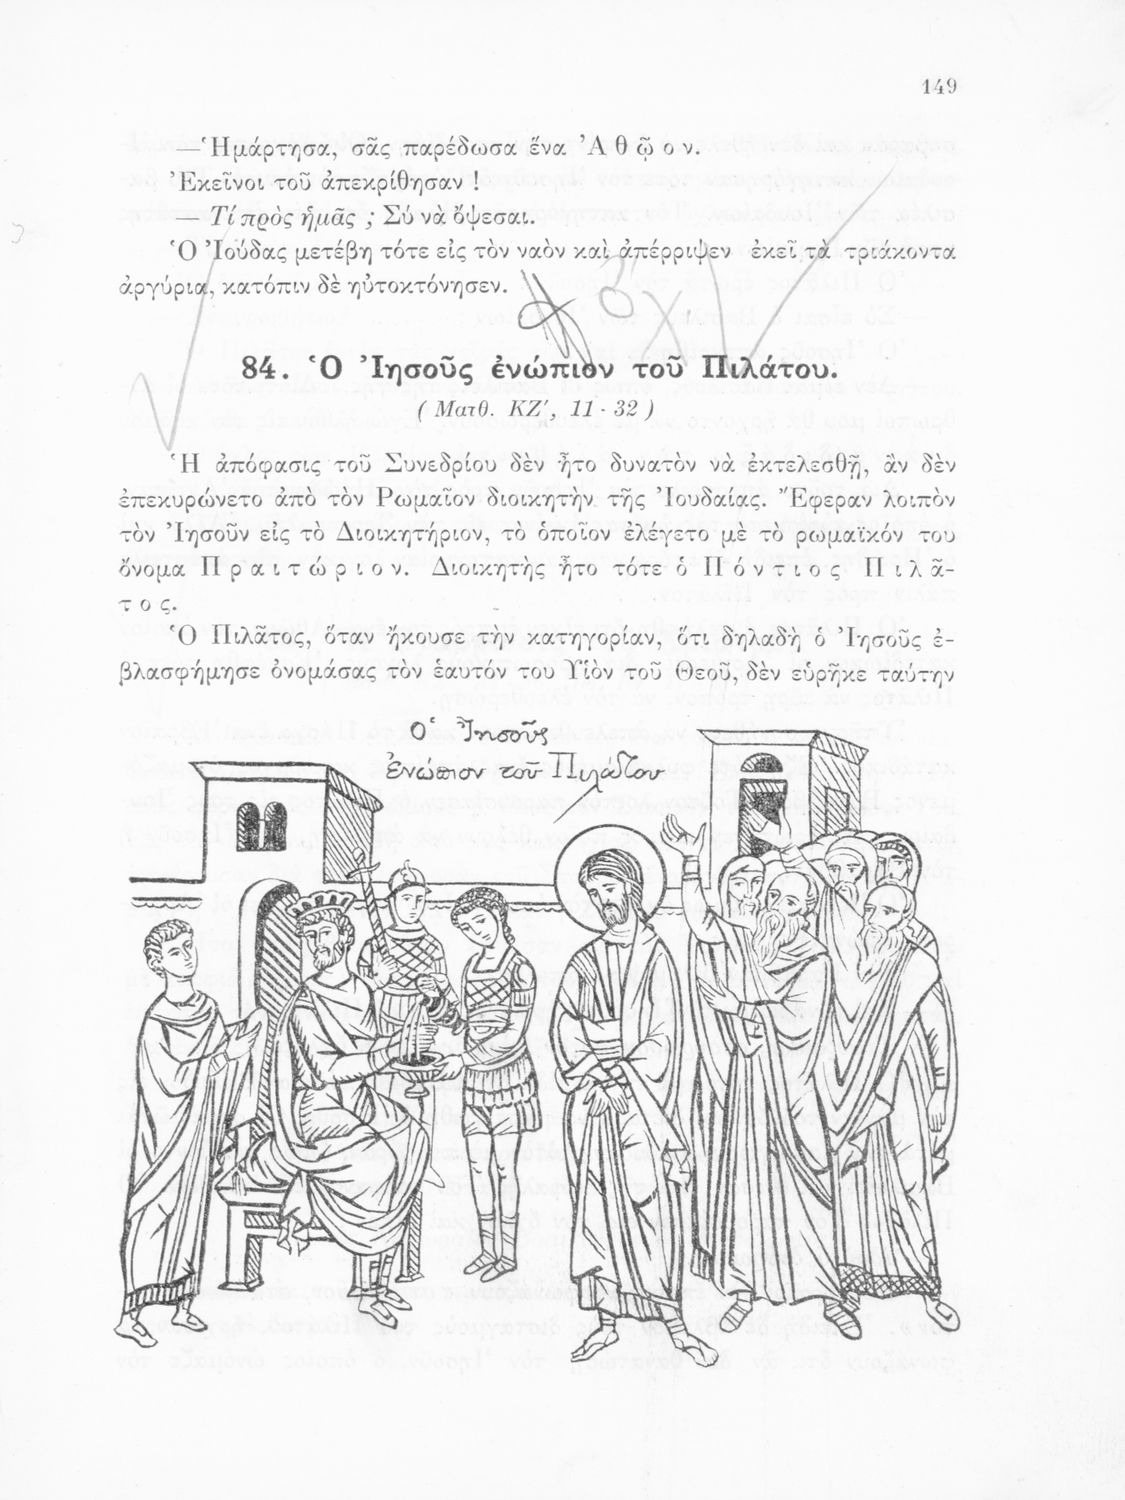 149
—Ἡμάρτησα, σᾶς παρέδωσα ἕνα Ἀθῷον.
Ἐκεῖνοι τοῦ ἀπεκρίθησαν !
—Τί πρὸς ἡμᾶς ; Σύ νὰ ὄψεσαι.
Ὁ Ἰούδας μετέβη τότε εἰς τὸν ναὸν καὶ ἀπέρριψεν ἐκεῖ τὰ τριάκοντα
ἀργύρια, κατόπιν δὲ ηὐτοκτόνησεν.
84. Ὁ Ἰησοῦς ἐνώπιον τοῦ Πιλάτου.
( Ματθ. ΚΖ′, 11 - 32 )
Ἡ ἀπόφασις τοῦ Συνεδρίου δὲν ἦτο δυνατὸν νὰ ἐκτελεσθῇ, ἂν δὲν
ἐπεκυρώνετο ἀπὸ τὸν Ρωμαῖον διοικητὴν τῆς Ἰουδαίας. Ἔφεραν λοιπὸν
τὸν Ἰησοῦν εἰς τὸ Διοικητήριον, τὸ ὁποῖον ἐλέγετο μὲ τὸ ρωμαϊκόν του
ὄνομα Πραιτώριον. Διοικητὴς ἦτο τότε ὁ Πόντιος Πιλᾶ-
τος.
Ὁ Πιλᾶτος, ὅταν ἤκουσε τὴν κατηγορίαν, ὅτι δηλαδὴ ὁ Ἰησοῦς ἐ-
βλασφήμησε ὀνομάσας τὸν ἑαυτόν του Υἱὸν τοῦ Θεοῦ, δὲν εὑρῆκε ταύτην
Ὁ Ἰησοῦς
ἐνώπιον τοῦ Πιλάτου